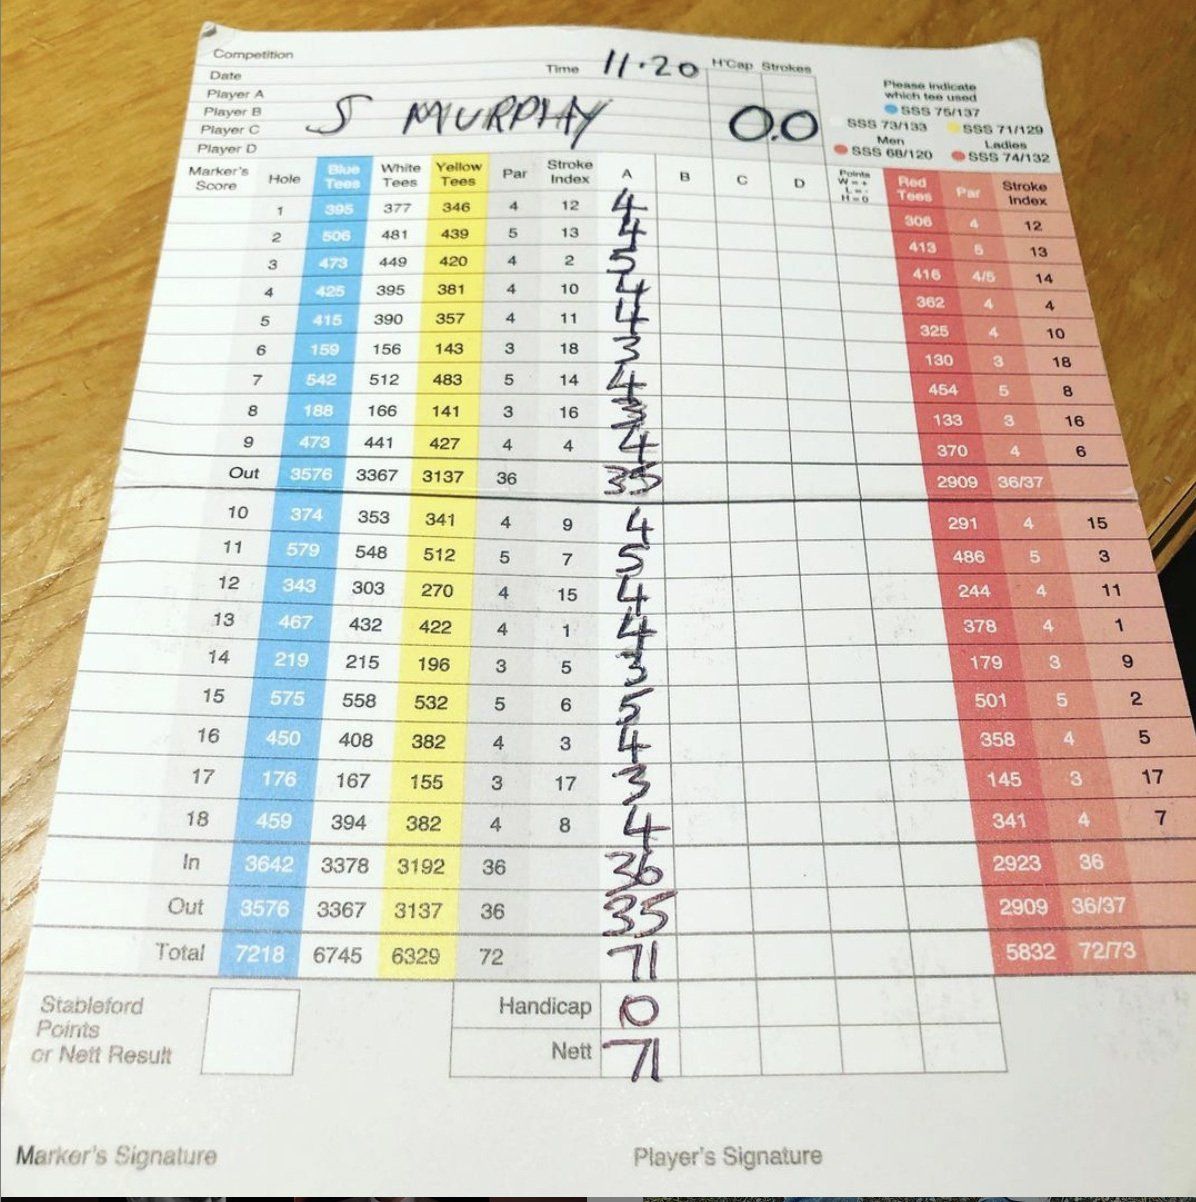 Competition
Date Time 11.20 H'Cap Strokes
Player A
Player B S MURPHY 0.0
Player C
Player D
Please indicate
which tee used
SSS 75/137
SSS 73/133 SSS 71/129
Men Ladies
SSS 68/120 SSS 74/132
Marker's Score Hole Blue Tees White Tees Yellow Tees Par Stroke Index A B C D Points W = + L = - H = 0 Red Tees Par Stroke Index
1 395 377 346 4 12 4 306 4 12
2 506 481 439 5 13 4 413 5 13
3 473 449 420 4 2 5 416 4/5 14
4 425 395 381 4 10 4 362 4 4
5 415 390 357 4 11 4 325 4 10
6 159 156 143 3 18 3 130 3 18
7 542 512 483 5 14 4 454 5 8
8 188 166 141 3 16 3 133 3 16
9 473 441 427 4 4 4 370 4 6
Out 3576 3367 3137 36 35 2909 36/37
10 374 353 341 4 9 4 291 4 15
11 579 548 512 5 7 5 486 5 3
12 343 303 270 4 15 4 244 4 11
13 467 432 422 4 1 4 378 4 1
14 219 215 196 3 5 3 179 3 9
15 575 558 532 5 6 5 501 5 2
16 450 408 382 4 3 4 358 4 5
17 176 167 155 3 17 3 145 3 17
18 459 394 382 4 8 4 341 4 7
In 3642 3378 3192 36 36 2923 36
Out 3576 3367 3137 36 35 2909 36/37
Total 7218 6745 6329 72 71 5832 72/73
Stableford
Points
or Nett Result
Handicap 0
Nett 71
Marker's Signature Player's Signature